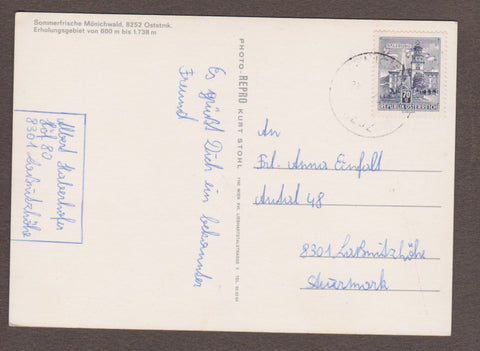 Sommerfrische Mönichwald, 8252 Oststmk.
Erholungsgebiet von 600 m bis 1.738 m
Es grüßt Dich ein bekannter
Freund
Albert
80
8301 Laßnitzhöhe
PHOTO REPRO KURT STOHL
REPUBLIK ÖSTERREICH
An
Frl. Anna Einfalt
48
8301 Laßnitzhöhe
Steiermark